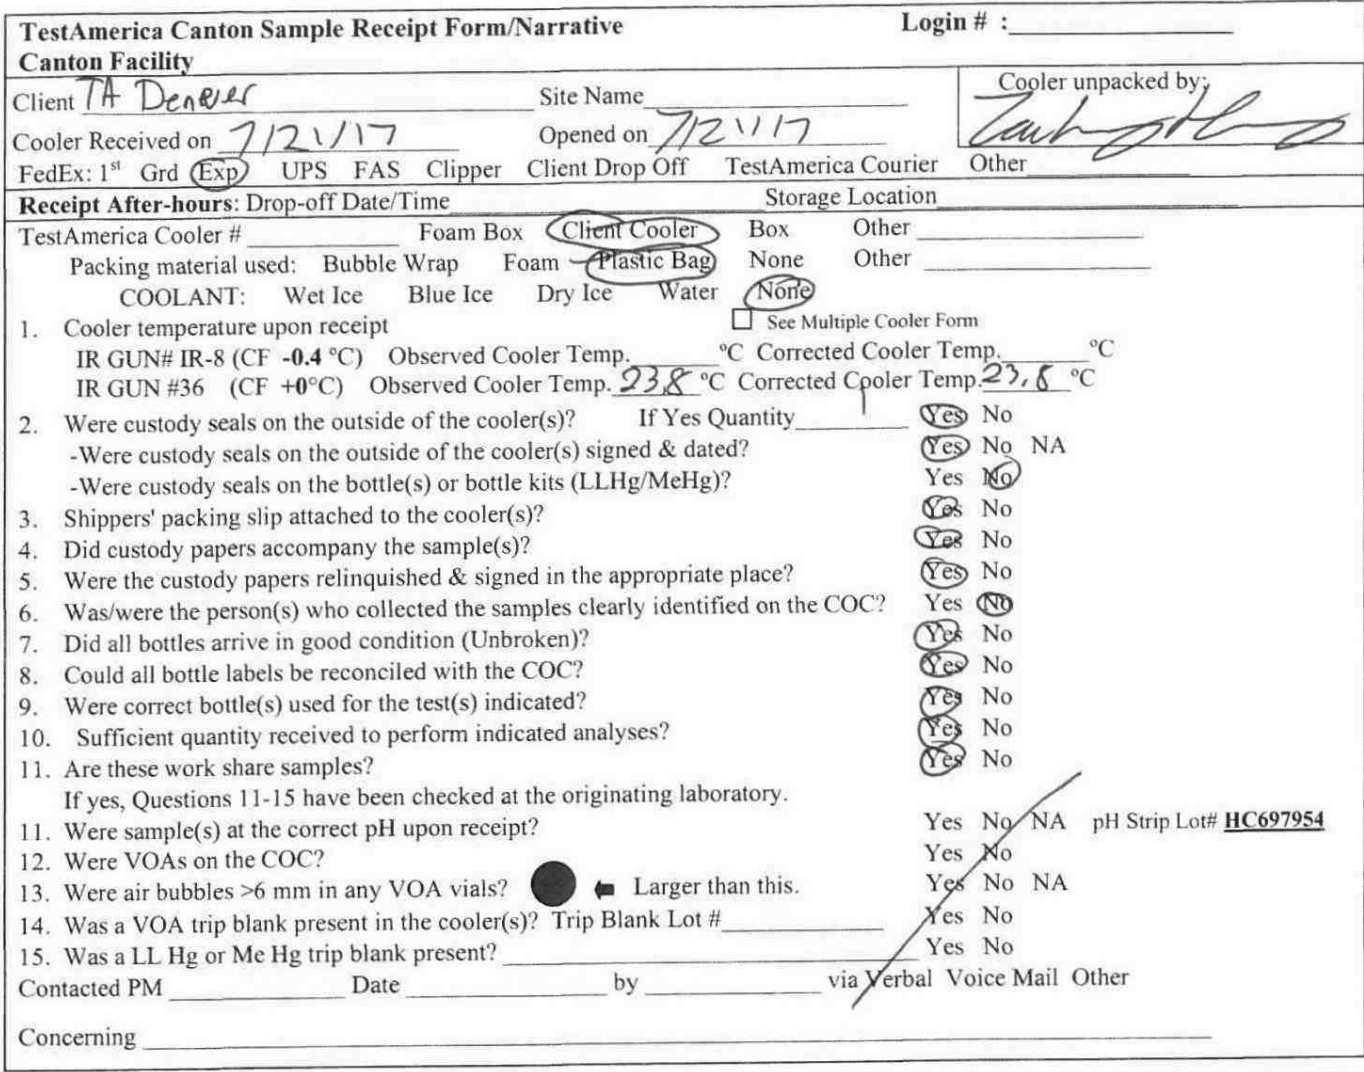 TestAmerica Canton Sample Receipt Form/Narrative Login # :
Canton Facility
Client TA Denver Site Name Cooler unpacked by:
Cooler Received on 7/21/17 Opened on 7/21/17
FedEx: 1st Grd Exp UPS FAS Clipper Client Drop Off TestAmerica Courier Other
Receipt After-hours: Drop-off Date/Time Storage Location
TestAmerica Cooler # Foam Box Client Cooler Box Other
Packing material used: Bubble Wrap Foam Plastic Bag None Other
COOLANT: Wet Ice Blue Ice Dry Ice Water None
1. Cooler temperature upon receipt See Multiple Cooler Form
IR GUN# IR-8 (CF -0.4 °C) Observed Cooler Temp. °C Corrected Cooler Temp. °C
IR GUN #36 (CF +0°C) Observed Cooler Temp. 23.8 °C Corrected Cooler Temp. 23.8 °C
2. Were custody seals on the outside of the cooler(s)? If Yes Quantity 1 Yes No
-Were custody seals on the outside of the cooler(s) signed & dated? Yes No NA
-Were custody seals on the bottle(s) or bottle kits (LLHg/MeHg)? Yes No
3. Shippers' packing slip attached to the cooler(s)? Yes No
4. Did custody papers accompany the sample(s)? Yes No
5. Were the custody papers relinquished & signed in the appropriate place? Yes No
6. Was/were the person(s) who collected the samples clearly identified on the COC? Yes No
7. Did all bottles arrive in good condition (Unbroken)? Yes No
8. Could all bottle labels be reconciled with the COC? Yes No
9. Were correct bottle(s) used for the test(s) indicated? Yes No
10. Sufficient quantity received to perform indicated analyses? Yes No
11. Are these work share samples? Yes No
If yes, Questions 11-15 have been checked at the originating laboratory.
11. Were sample(s) at the correct pH upon receipt? Yes No NA pH Strip Lot# HC697954
12. Were VOAs on the COC? Yes No
13. Were air bubbles >6 mm in any VOA vials? Larger than this. Yes No NA
14. Was a VOA trip blank present in the cooler(s)? Trip Blank Lot # Yes No
15. Was a LL Hg or Me Hg trip blank present? Yes No
Contacted PM Date by via Verbal Voice Mail Other
Concerning